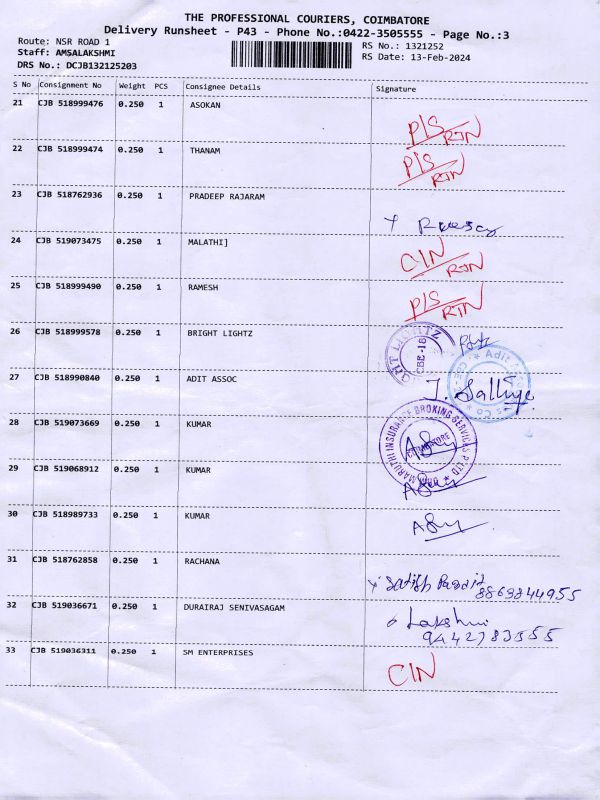 THE PROFESSIONAL COURIERS, COIMBATORE
Delivery Runsheet - P43 - Phone No.:0422-3505555 - Page No.:3
Route: NSR ROAD 1
RS No.: 1321252
Staff: AMSALAKSHMI
RS Date: 13-Feb-2024
DRS No.: DCJB132125203
S No Consignment No Weight PCS Consignee Details Signature
21 CJB 518999476 0.250 1 ASOKAN
P/S RTN
22 CJB 518999474 0.250 1 THANAM
P/S RTN
23 CJB 518762936 0.250 1 PRADEEP RAJARAM
24 CJB 519073475 0.250 1 MALATHI]
C/N RTN
25 CJB 518999490 0.250 1 RAMESH
P/S RTN
26 CJB 518999578 0.250 1 BRIGHT LIGHTZ
27 CJB 518990840 0.250 1 ADIT ASSOC
Adit
28 CJB 519073669 0.250 1 KUMAR
MARUTHI INSURANCE BROKING SERVICES P LTD
COIMBATORE
29 CJB 519068912 0.250 1 KUMAR
30 CJB 518989733 0.250 1 KUMAR
31 CJB 518762858 0.250 1 RACHANA
Satish
8869844955
32 CJB 519036671 0.250 1 DURAIRAJ SENIVASAGAM
Lakshmi
9442783555
33 CJB 519036311 0.250 1 SM ENTERPRISES
C/N